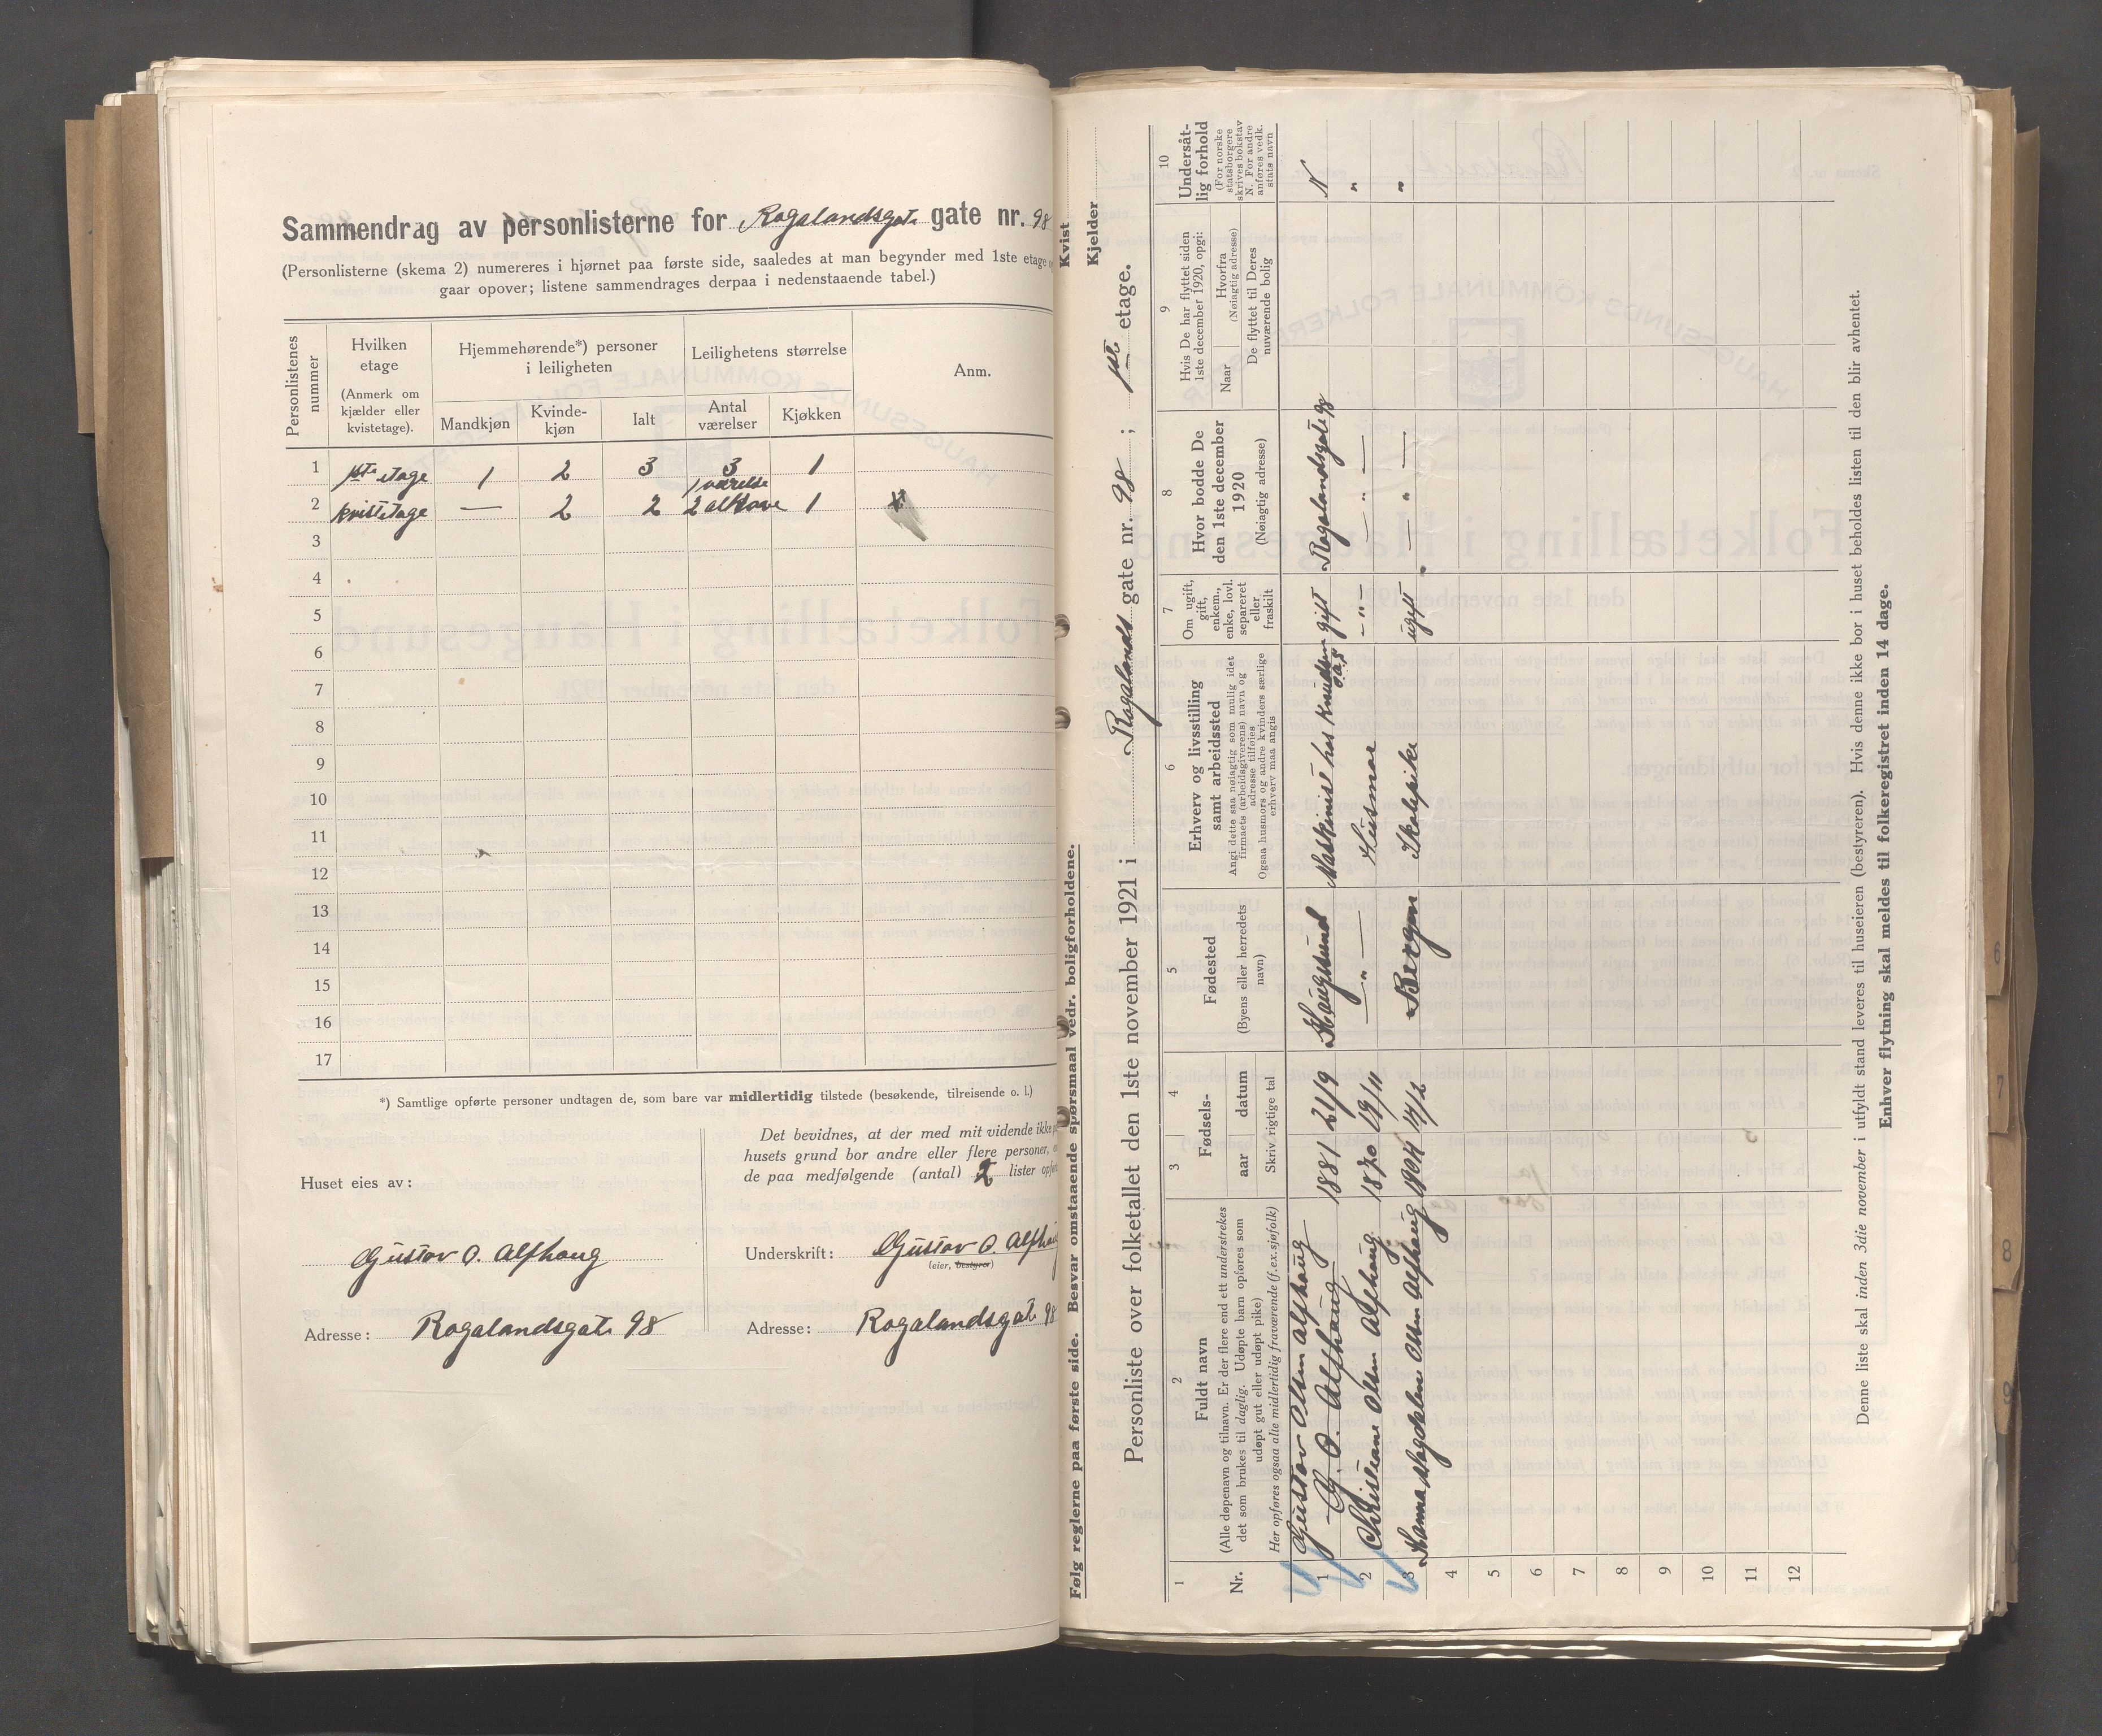 Sammendrag av personlisterne for Rogalandsgate gate nr. 98
(Personlisterne (skema 2) numereres i hjørnet paa første side, saaledes at man begynder med 1ste etage
gaar opover; listene sammendrages derpaa i nedenstaaende tabel.)
Personlistenes nummer
Hvilken etage
(Anmerk om kjælder eller kvistetage).
Hjemmehørende*) personer i leiligheten
Mandkjøn
Kvindekjøn
Ialt
Leilighetens størrelse
Antal værelser
Kjøkken
Anm.
1 1ste etage 1 2 3 3 1
2 kvistetage — 2 2 1 værelse 2 alkove 1 x
3
4
5
6
7
8
9
10
11
12
13
14
15
16
17
*) Samtlige opførte personer undtagen de, som bare var midlertidig tilstede (besøkende, tilreisende o. l.)
Huset eies av:
Gustav O. Alfhaug
Adresse: Rogalandsgate 98
Det bevidnes, at der med mit vidende ikke
husets grund bor andre eller flere personer,
de paa medfølgende (antal) 2 lister
Underskrift: Gustav O. Alfhaug
(eier, bestyrer)
Adresse: Rogalandsgate 98
Følg reglerne paa første side. Besvar omstaaende spørsmaal vedr. boligforholdene.
Kvist
Kjelder
Personliste over folketallet den 1ste november 1921 i Rogalands gate nr. 98 ; 1ste etage.
1
Nr.
2
Fuldt navn
(Alle døpenavn og tilnavn. Er der flere end ett understrekes
det som brukes til daglig. Udøpte barn opføres som
udøpt gut eller udøpt pike)
Her opføres ogsaa alle midlertidig fraværende (f.ex. sjøfolk)
3 4
Fødsels-
aar datum
Skriv rigtige tal
5
Fødested
(Byens eller herredets navn)
6
Erhverv og livsstilling
samt arbeidssted
Angi dette saa nøiagtig som mulig idet
firmaets (arbeidsgiverens) navn og
adresse tilføies
Ogsaa husmors og andre kvinders særlige
erhverv maa angis
7
Om ugift,
gift,
enkem.,
enke, lovl.
separeret
eller
fraskilt
8
Hvor bodde De
den 1ste december
1920
(Nøiagtig adresse)
9
Hvis De har flyttet siden
1ste december 1920, opgi:
Naar
Hvorfra
(Nøiagtig adresse)
De flyttet til Deres
nuværende bolig
10
Undersåt-
lig forhold
(For norske
statsborgere
skrives bokstav
N. For andre
anføres vedk.
stats navn
Gustav Olsen Alfhaug
1 G. O. Alfhaug 1881 21/9 Haugesund Maskinist hos Knudsen O.A.S gift Rogalandsgate 98 N
2 Christiane Olsen Alfhaug 1870 19/11 — " — Husmor — " — — " — "
3 Hanna Magdalene Olsen Alfhaug 1904 17/2 Bergen Skolepike ugift — " — "
4
5
6
7
8
9
10
11
12
Denne liste skal inden 3die november i utfyldt stand leveres til huseieren (bestyreren). Hvis denne ikke bor i huset beholdes listen til den blir avhentet.
Enhver flytning skal meldes til folkeregistret inden 14 dage.
6
7
8
9